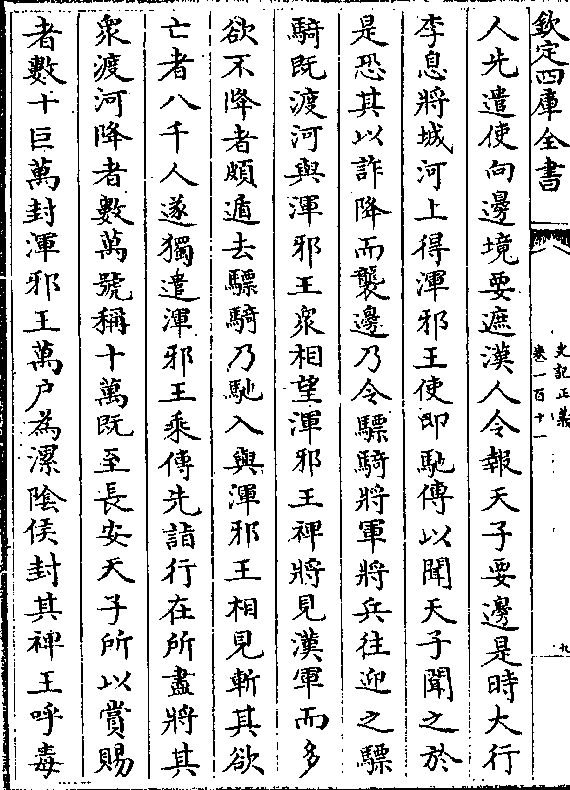 欽定四庫全書
史記正義
卷一百十一
九
人先遣使向邊境要遮漢人令報天子要邊是時大行
李息將城河上得渾邪王使即馳傳以聞天子聞之於
是恐其以詐降而襲邊乃令驃騎將軍將兵往迎之驃
騎既渡河與渾邪王衆相望渾邪王裨將見漢軍而多
欲不降者頗遁去驃騎乃馳入與渾邪王相見斬其欲
亡者八千人遂獨遣渾邪王乘傳先詣行在所盡將其
衆渡河降者數萬號稱十萬既至長安天子所以賞賜
者數十巨萬封渾邪王萬户為漯陰侯封其裨王呼毒